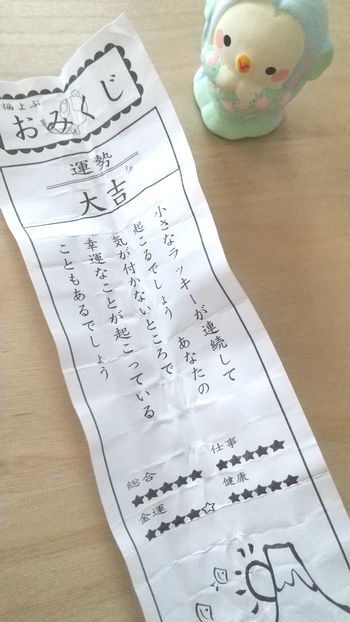 福よぶ
おみくじ
運勢
大吉
小さなラッキーが連続して
起こるでしょう　あなたの
気が付かないところで
幸運なことが起こっている
こともあるでしょう
仕事
★★★★★
健康
★★★★★
総合
★★★★★
金運
★★★★☆